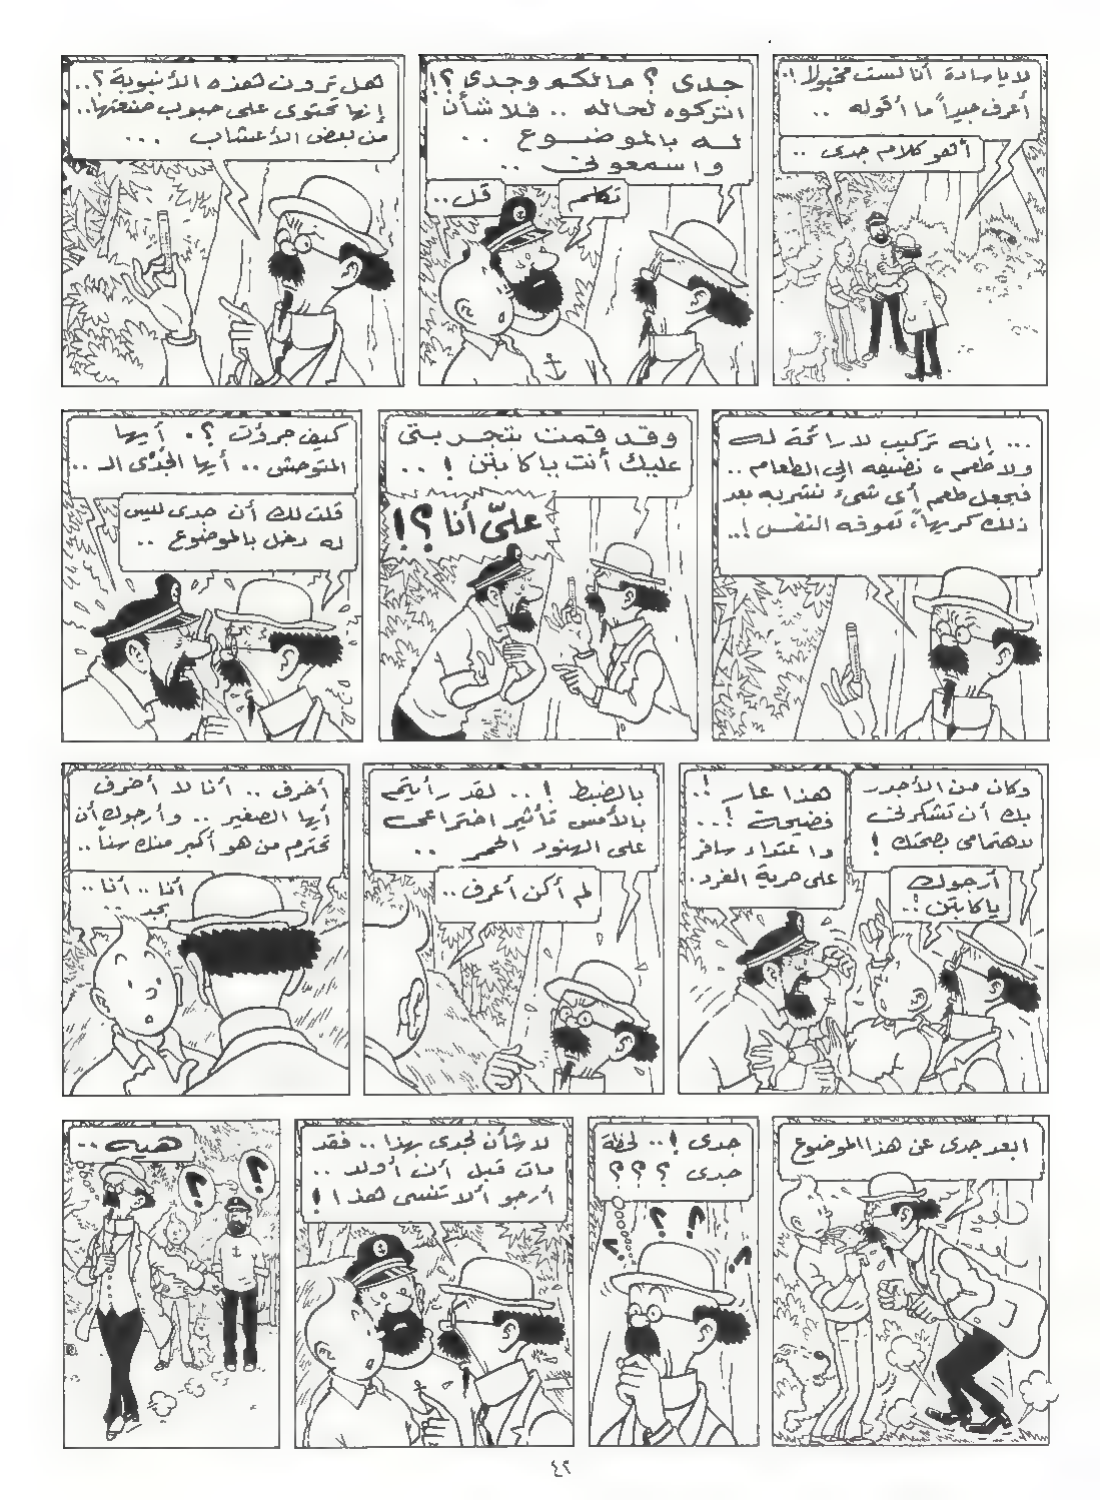 لا يا سادة أنا لست مخبولا !.
أعرف جيداً ما أقوله ..
ألهو كلام جدى ..
جدى ؟ مالكم وجدى ؟!
اتركوه لحاله .. فلا شأن
له بالموضوع ..
واسمعونى ..
تكلم
قل ..
هل ترون هذه الأنبوبة ؟..
إنها تحتوى على حبوب صنعتها..
من بعض الأعشاب ...
... إنه تركيب لا رائحة له
ولا طعم ، نضيفه إلى الطعام ..
فيجعل طعم أى شىء نشربه بعد
ذلك كريهاً، تعوفه النفس !..
وقد قمت بتجربتى
عليك أنت يا كابتن ! ..
علىّ أنا ؟!
كيف جرؤت ؟. أيها
المتوحش .. أيها الجدى الـ ..
قلت لك أن جدى ليس
له دخل بالموضوع ..
وكان من الأجدر
بك أن تشكرنى
لاهتمامى بصحتك !
أرجوك
يا كابتن !..
هذا عار !.
فضيحة !..
واعتداء سافر
على حرية الفرد.
بالضبط ! .. لقد رأيتم
بالأمس تأثير اختراعى
على الهنود الحمر ..
لم أكن أعرف ..
أخرف .. أنا لا أخرف
أيها الصغير .. وأرجوك أن
تحترم من هو أكبر منك سناً ..
أنا .. أنا ..
بجد ..
ابعد جدى عن هذا الموضوع
جدى !.. لحظة
جدى ؟ ؟ ؟
؟ ؟ ؟ ؟
لا شأن لجدى بهذا .. فقد
مات قبل أن أولد ..
أرجو ألا تنسى هذا !
هيه ..
؟
؟
٤٢